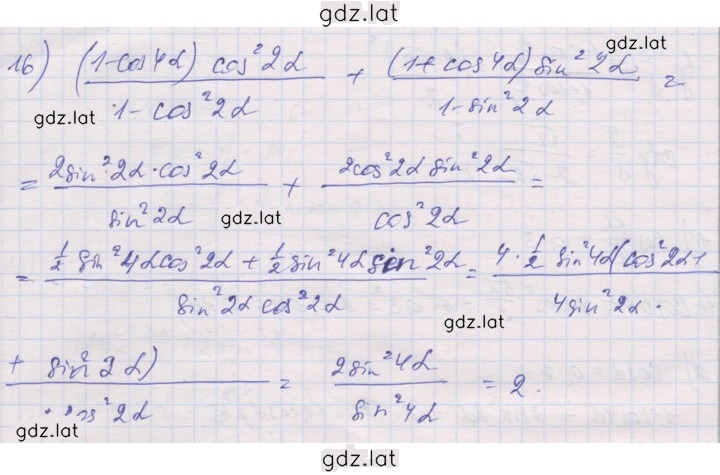 gdz.lat
16) (1-cos4α) cos²2α / 1-cos²2α + (1+cos4α) sin²2α / 1-sin²2α =
gdz.lat
gdz.lat
= 2sin²2α·cos²2α / sin²2α + 2cos²2α sin²2α / cos²2α =
gdz.lat
= ½ sin²4α cos²2α + ½ sin²4α sin²2α / sin²2α cos²2α = 4·½ sin²4α(cos²2α+ / 4sin²2α·
gdz.lat
+ sin²2α) / ·cos²2α = 2sin²4α / sin²4α = 2.
gdz.lat
gdz.lat
gdz.lat